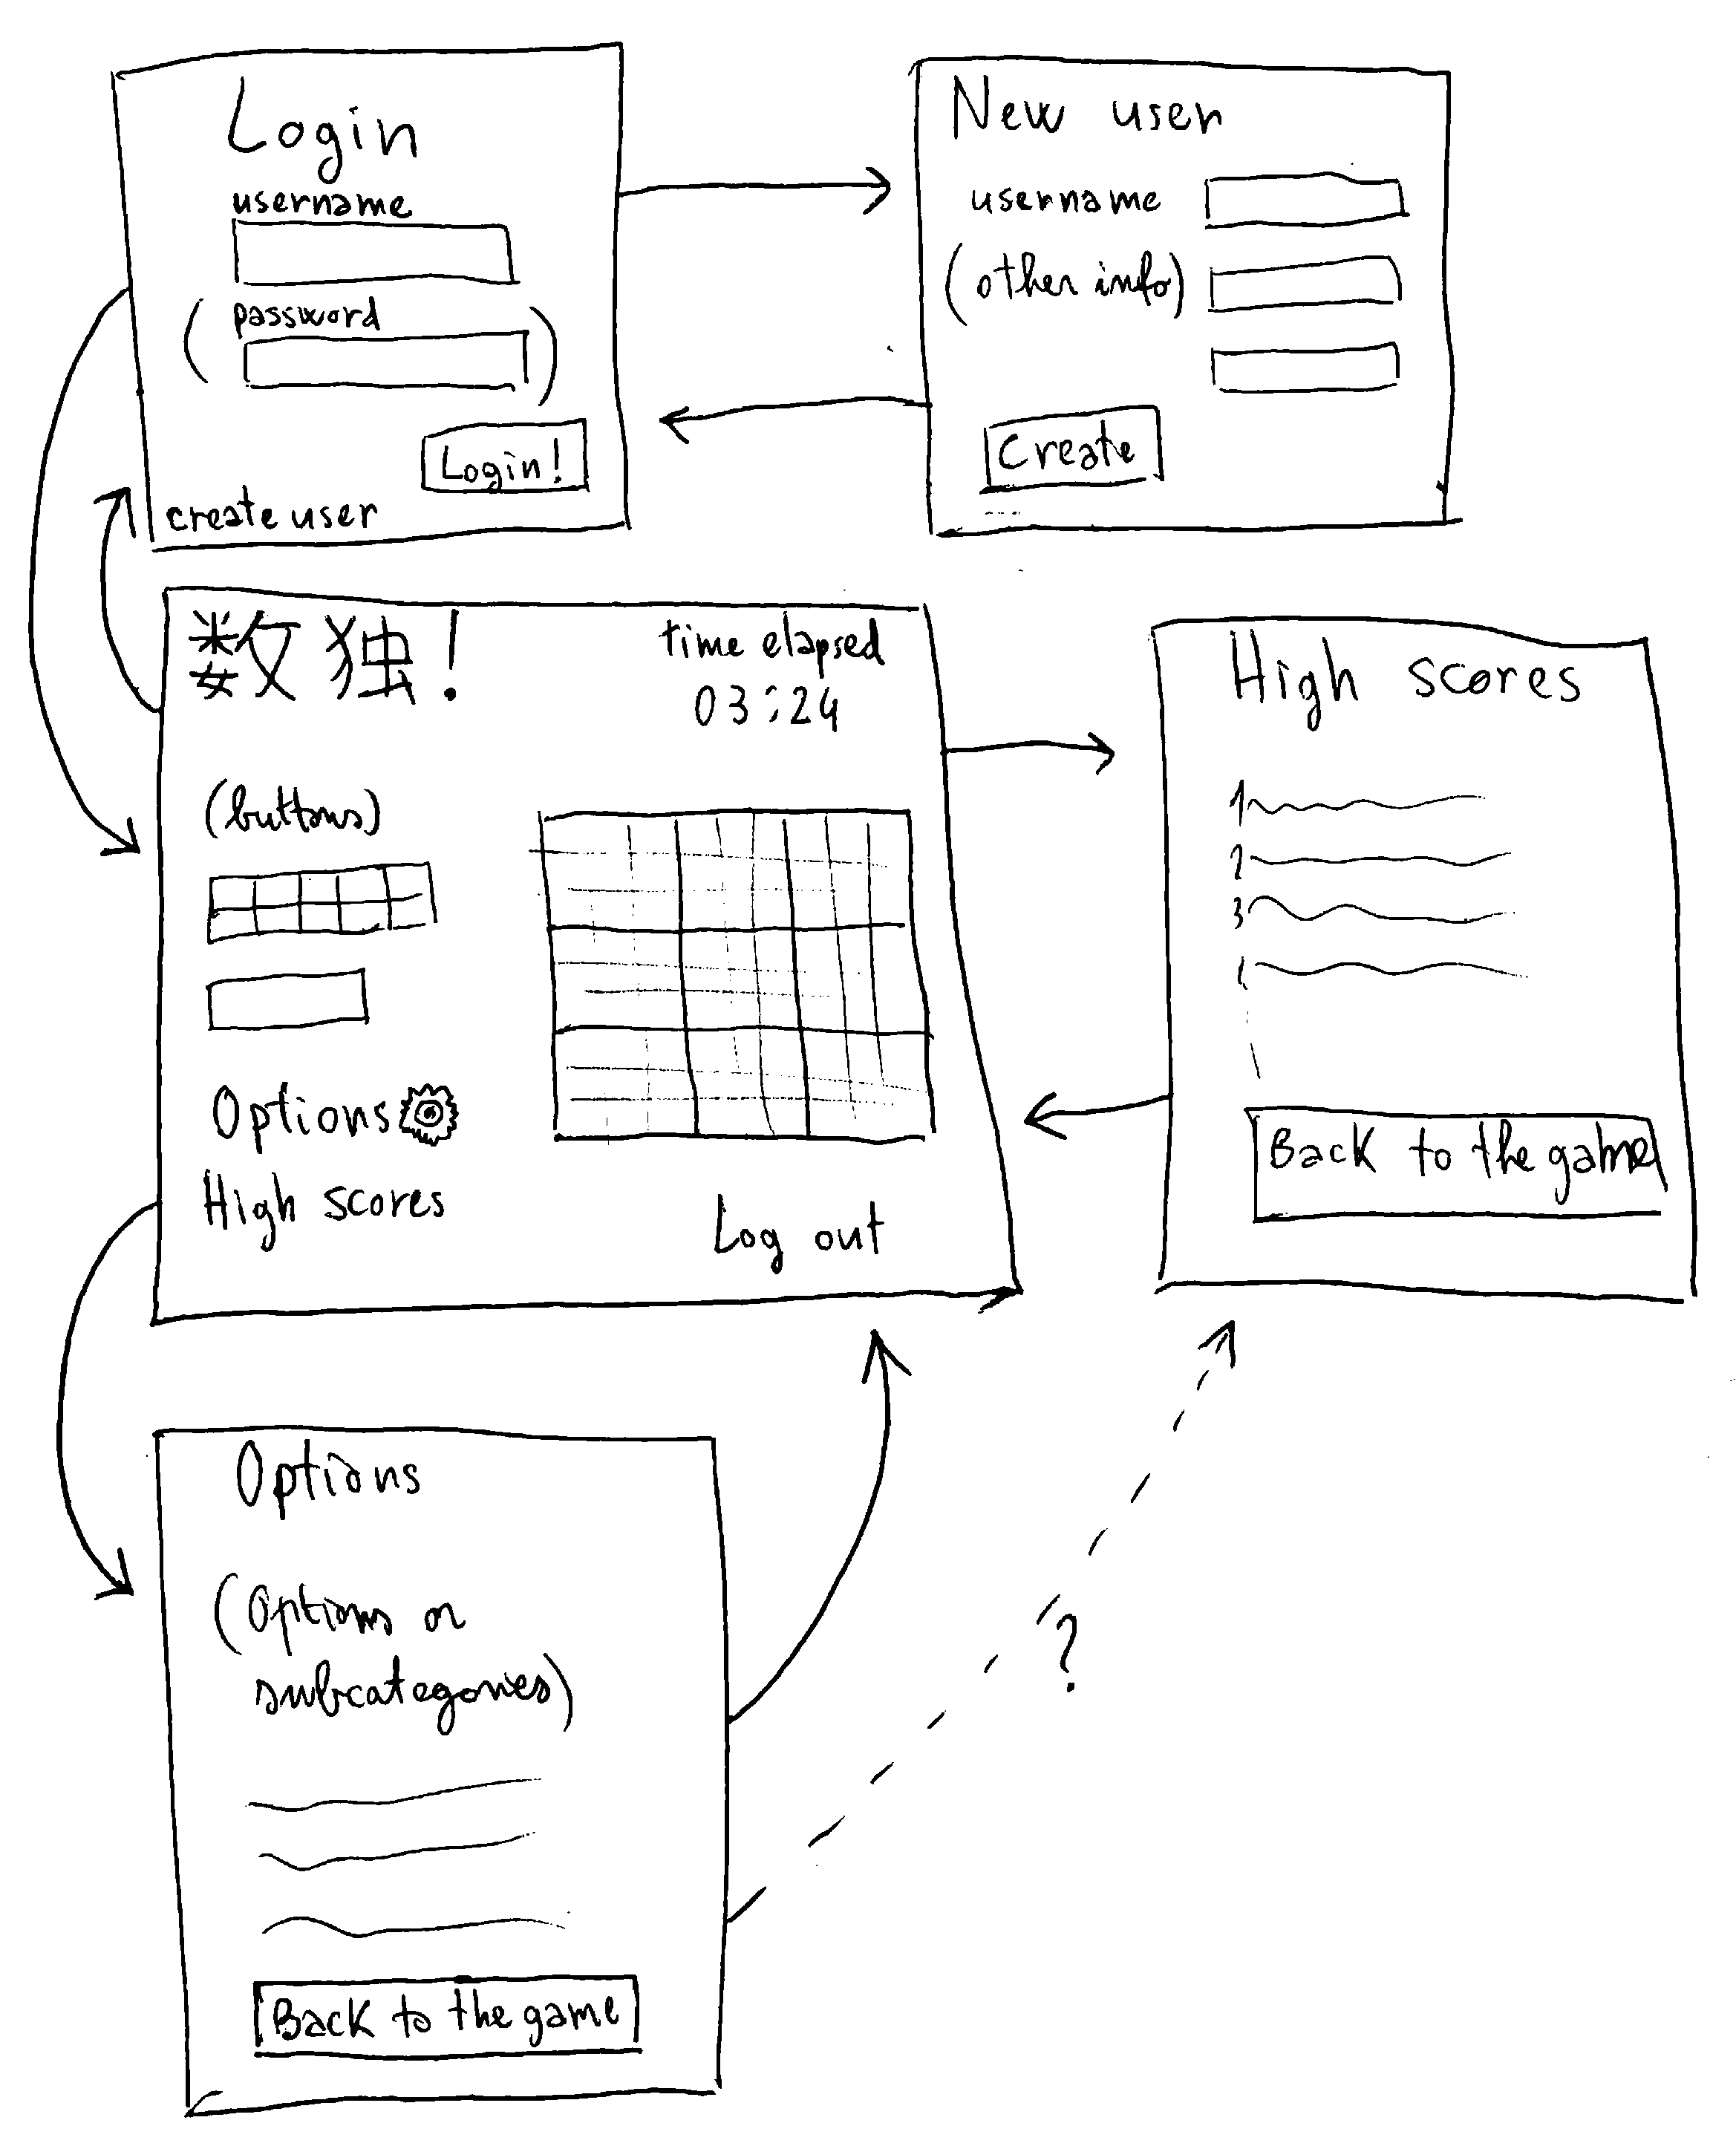 Login
username
(password)
Login!
create user
New user
username
(other info)
Create
数独!
time elapsed
03:24
(buttons)
Options
High scores
Log out
High scores
1
2
3
Back to the game
Options
(Options or
subcategories)
Back to the game
?